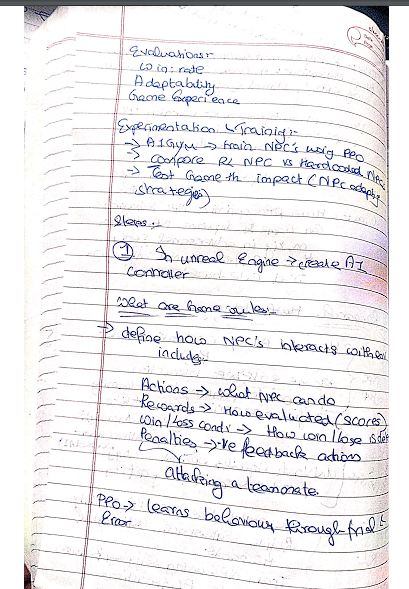 Evaluations:-
Win: rate
Adaptability
Game Experience
Experimentation & Training:-
→ AI Gym → train NPC's using PPO
→ Compare RL NPC vs Hardcoded NPC
→ Test Game th impact (NPC adapting
strategies)
Steps:-
① In unreal Engine → create AI
Controller
What are Game rules:-
→ define how NPC's interacts with
includes-
Actions → What NPC can do
Rewards → How evaluated (scores)
Win/loss condi → How win/lose is
Penalties → -ve feedback actions
attacking a teammate.
PPO → learns behaviour through trial &
Error